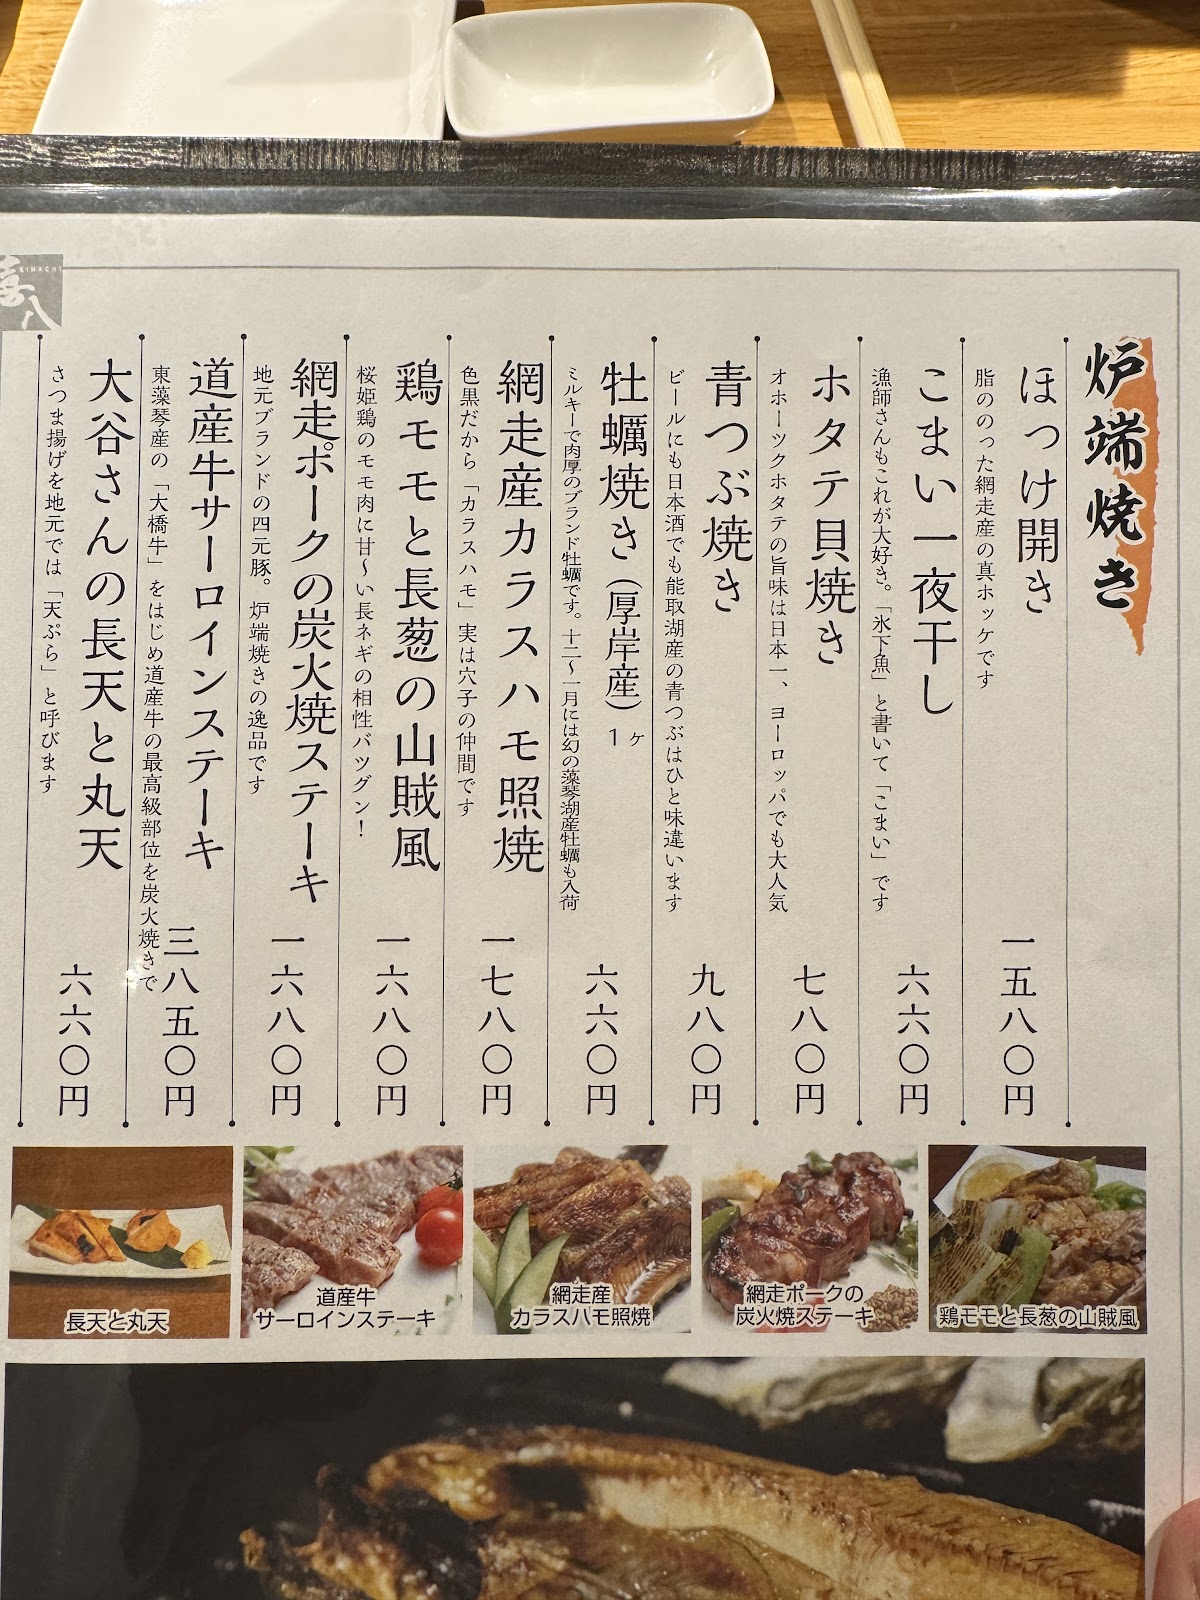 喜八
KIHACHI
炉端焼き
ほっけ開き
脂ののった網走産の真ホッケです
一五八〇円
こまい一夜干し
漁師さんもこれが大好き。「氷下魚」と書いて「こまい」です
六六〇円
ホタテ貝焼き
オホーツクホタテの旨味は日本一、ヨーロッパでも大人気
七八〇円
青つぶ焼き
ビールにも日本酒でも能取湖産の青つぶはひと味違います
九八〇円
牡蠣焼き(厚岸産)1ヶ
ミルキーで肉厚のブランド牡蠣です。十二〜一月には幻の藻琴湖産牡蠣も入荷
六六〇円
網走産カラスハモ照焼
色黒だから「カラスハモ」実は穴子の仲間です
一七八〇円
鶏モモと長葱の山賊風
桜姫鶏のモモ肉に甘〜い長ネギの相性バツグン!
一六八〇円
網走ポークの炭火焼ステーキ
地元ブランドの四元豚。炉端焼きの逸品です
一六八〇円
道産牛サーロインステーキ
東藻琴産の「大橋牛」をはじめ道産牛の最高級部位を炭火焼きで
三八五〇円
大谷さんの長天と丸天
さつま揚げを地元では「天ぷら」と呼びます
六六〇円
長天と丸天
道産牛
サーロインステーキ
網走産
カラスハモ照焼
網走ポークの
炭火焼ステーキ
鶏モモと長葱の山賊風